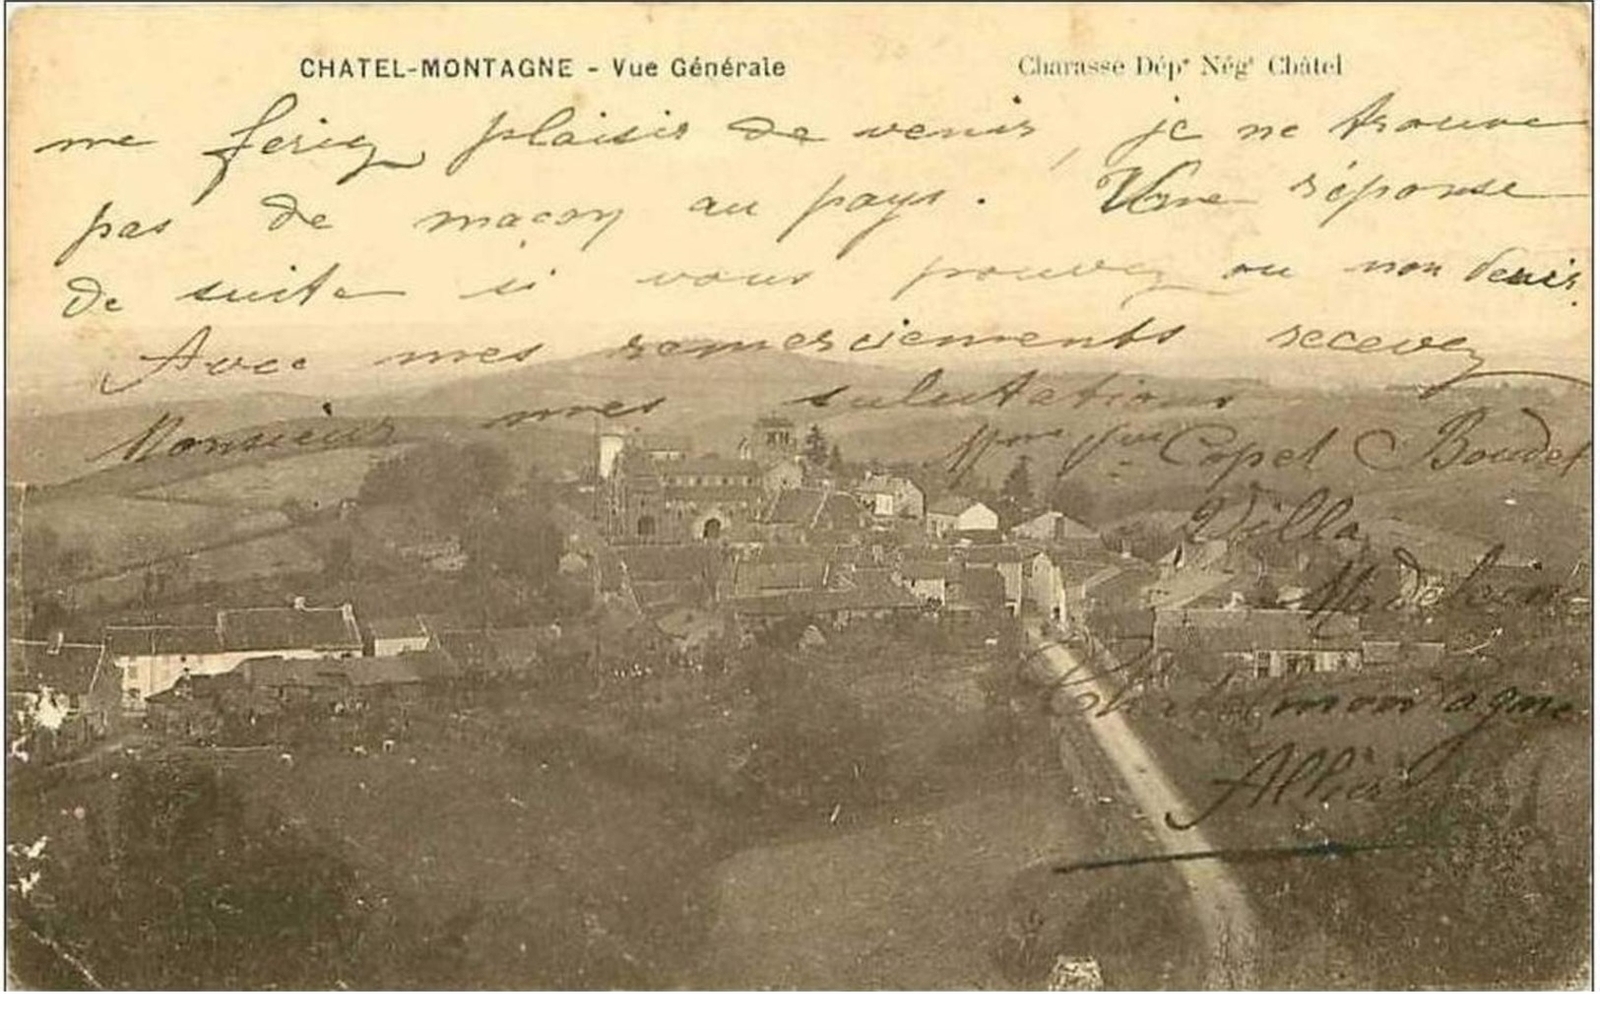 CHATEL-MONTAGNE - Vue Générale
Charasse Dépᵗ Négᵗ Châtel
me feriez plaisir de venir, je ne trouve
pas de maçon au pays. Une réponse
de suite si vous pouvez ou non venir.
Avec mes remerciements recevez
Monsieur mes salutations
Mme Vve Copet Boudet
Villa
Madeleine
Chatelmontagne
Allier